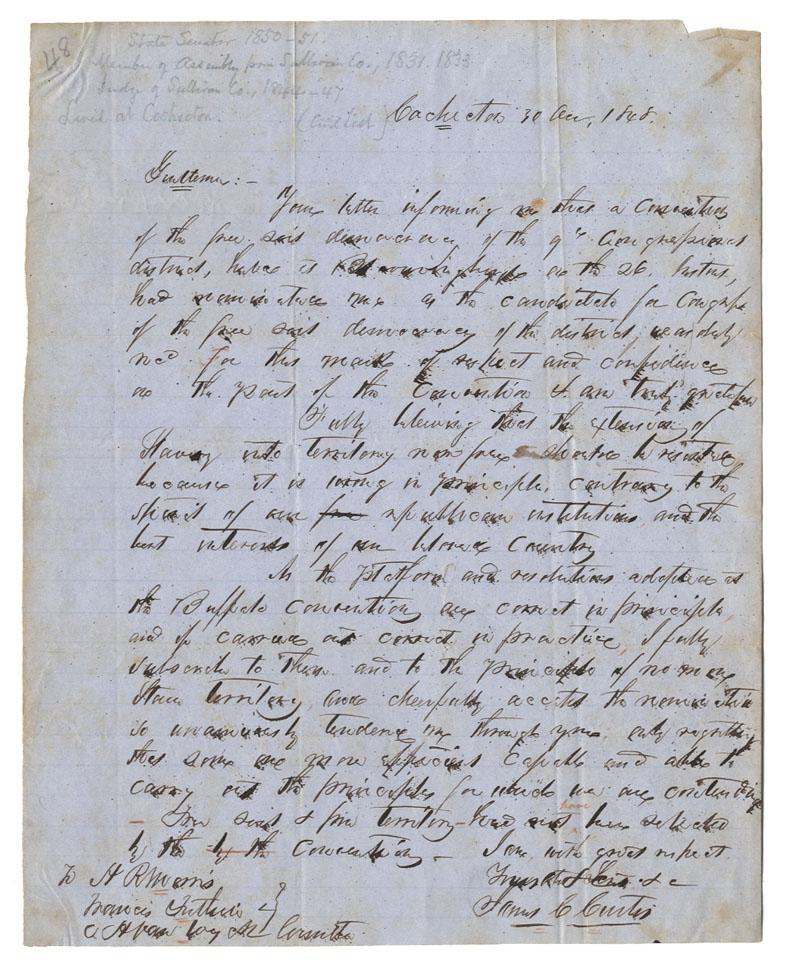 48
State Senator 1850-51.
Member of Assembly from Sullivan Co., 1831. 1833
Judge of Sullivan Co., 1844-47
Lived at Cochecton. (Civil List)
Cochecton 30 1848.
Gentlemen:-
Your letter informing me that a Convention
of the free soil democracy of the 9th Congressional
district, held at on the 26. Instant,
had nominated me as the candidate for Congress
of the free soil democracy of the district, was duly
recd For this mark of respect and confidence
on the part of the Convention I am truly grateful
Fully believing that the extension of
Slavery into territory now free should be resisted
because it is wrong in principle, contrary to the
spirit of our free republican institutions and the
best interests of our beloved Country
As the Platform and resolutions adopted at
the Buffalo Convention are correct in principle,
and if carried out correct in practice, I fully
subscribe to them and to the principle of no more
Slave territory, and cheerfully accept the nomination
so unanimously tendered me through you, only regretting
that some one more efficient Capable and able to
carry out the principles for which we are contending
- Free soil & free territory - had not have been selected
by the by the Convention - I am with great respect
Your &c
To H R Morris
Francis Guthrie &
Committee
James C Curtis